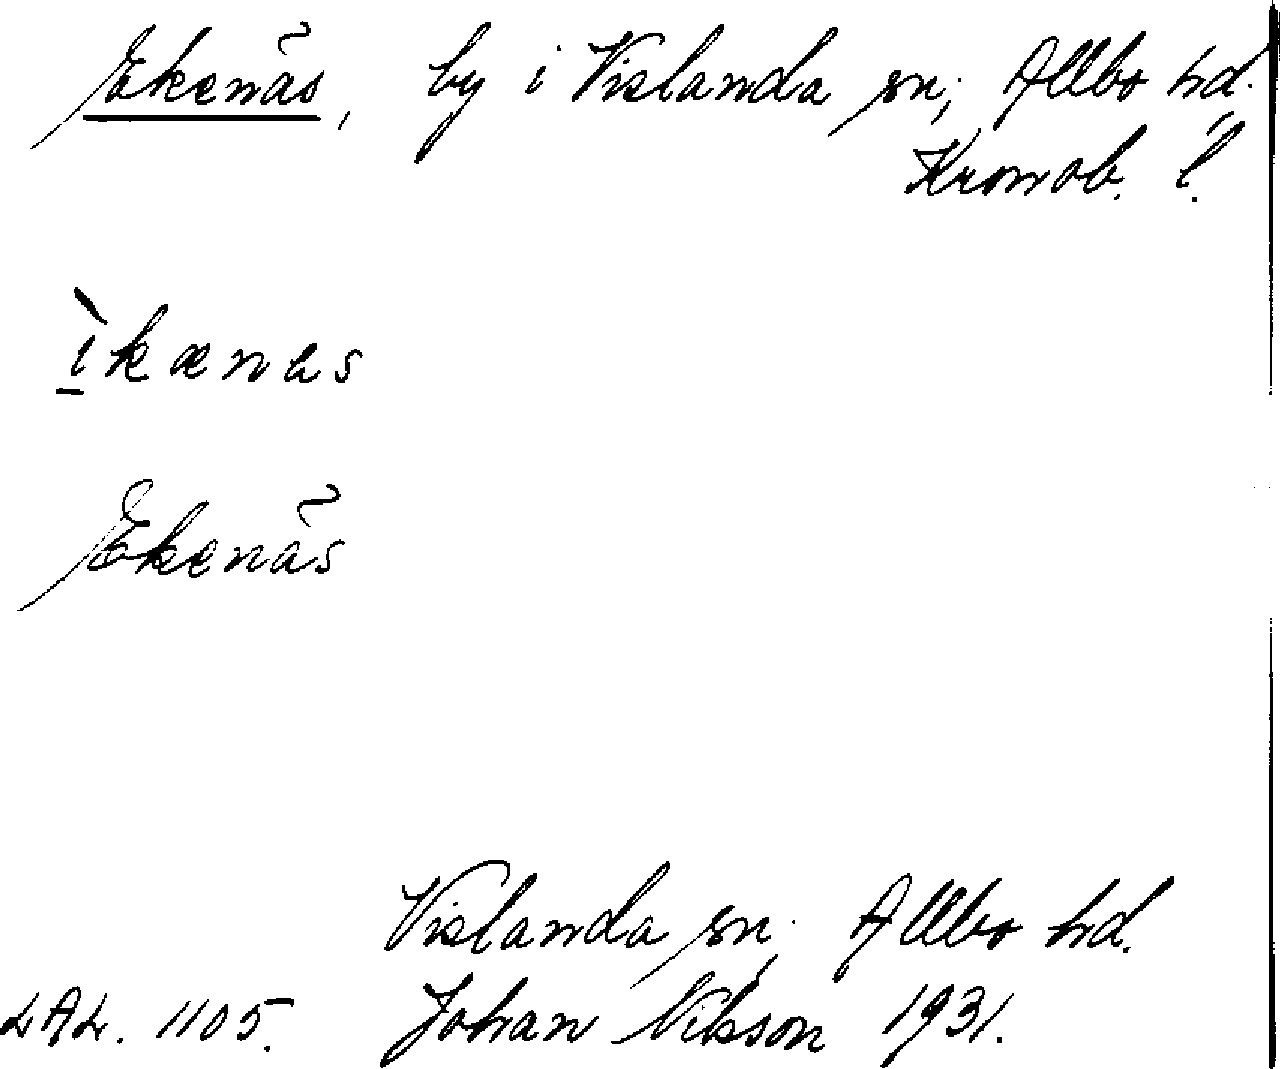 Ekenäs, by i Vislanda sn; Allbo hd.
Kronob. l.
ìkænäs
Ekenäs
Vislanda sn, Allbo hd.
LAL. 1105. Johan Nilsson 1931.